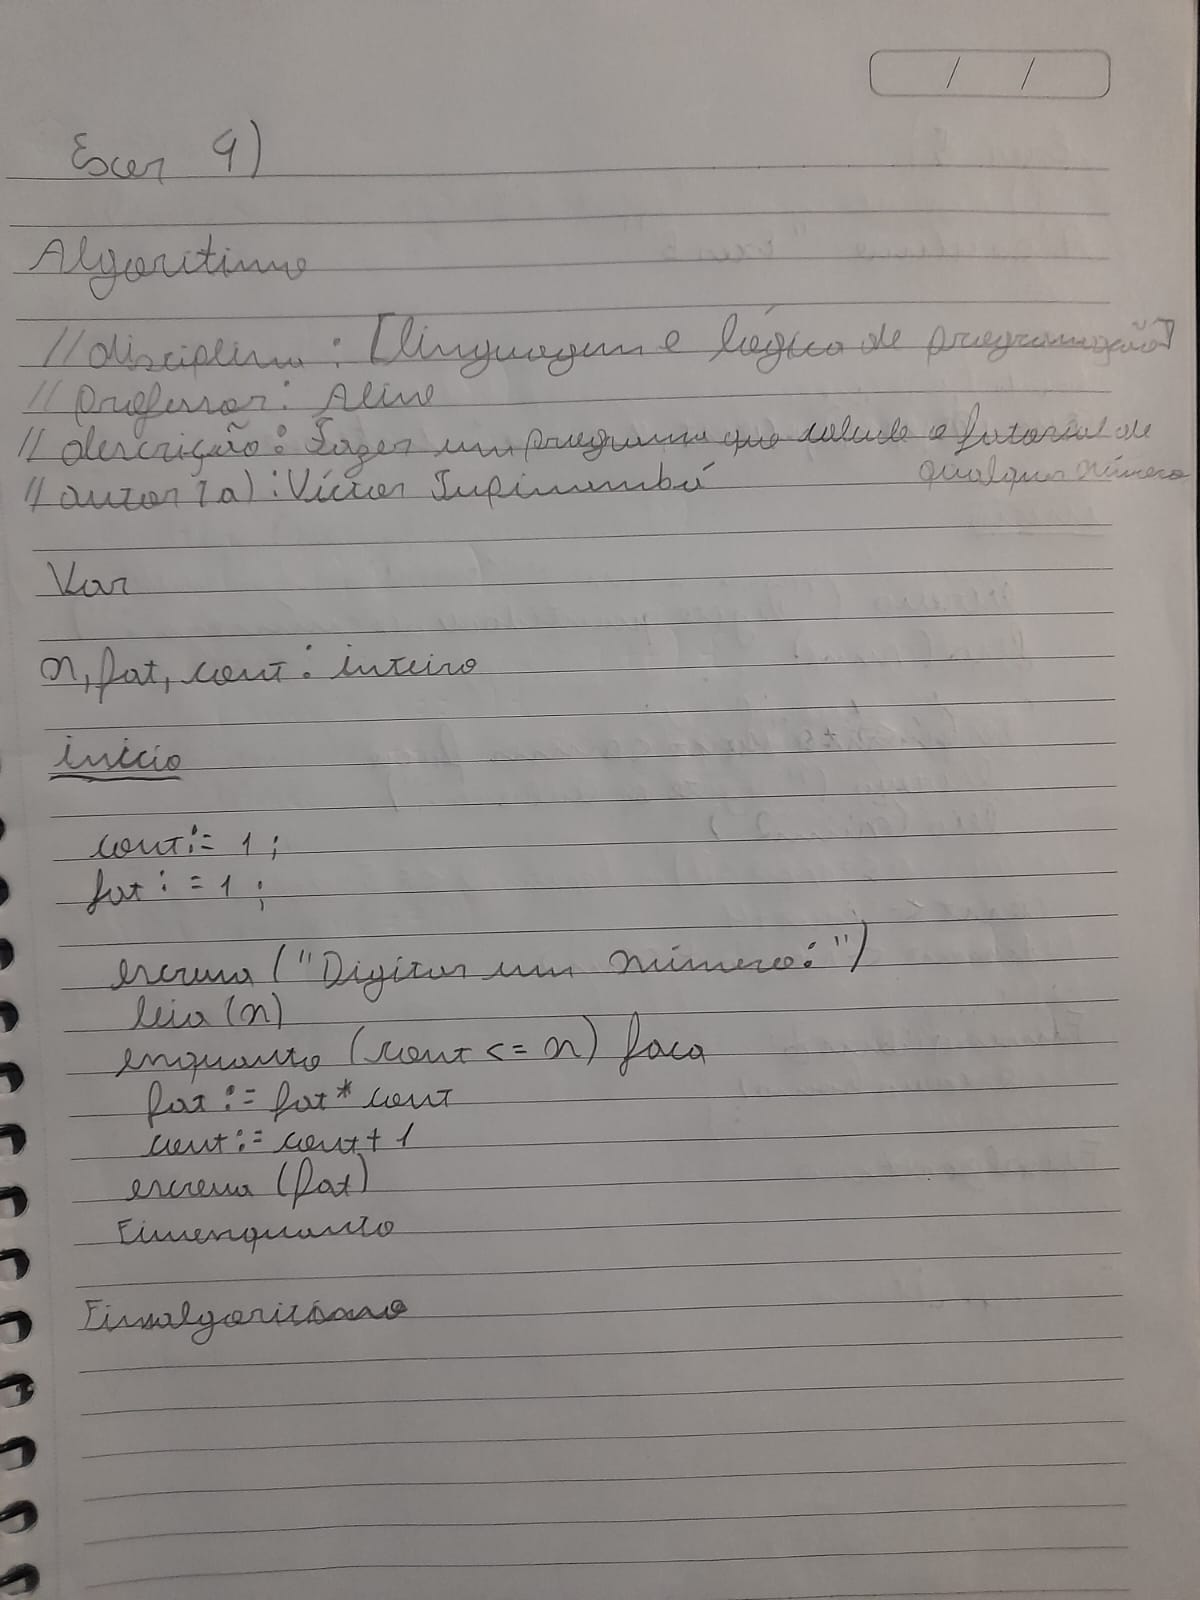 Exer 9)
Algoritimo
// disciplina : [linguagem e lógica de programação]
// professor : Aline
// descrição : Fazer um programa que calcule o fatorial de
qualquer número
// autor (a) : Víctor Tupinambá
Var
n, fat, cont : inteiro
inicio
cont := 1 ;
fat := 1 ;
escreva ("Digitar um número:")
leia (n)
enquanto (cont <= n) faca
fat := fat * cont
cont := cont + 1
escreva (fat)
Fimenquanto
Fimalgoritimo